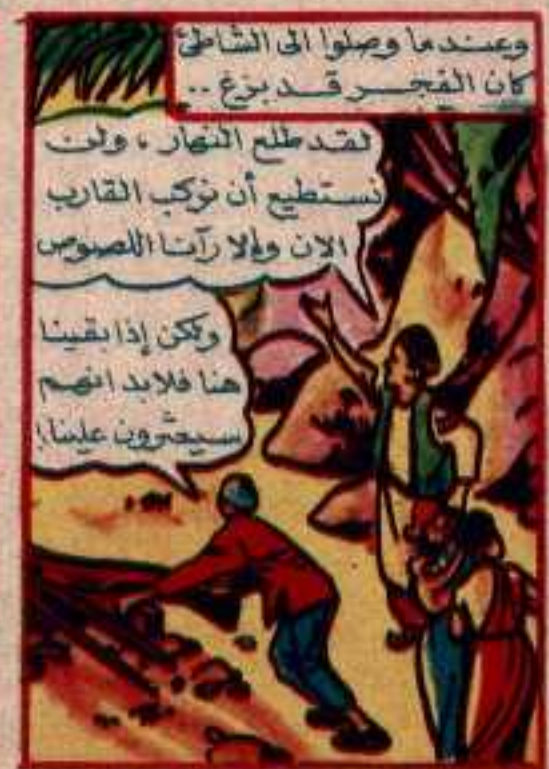 وعندما وصلوا الى الشاطئ
كان الفجر قد بزغ ..
لقد طلع النهار ، ولن
نستطيع أن نركب القارب
الان وإلا رآنا اللصوص
ولكن إذا بقينا
هنا فلابد انهم
سيعثرون علينا !